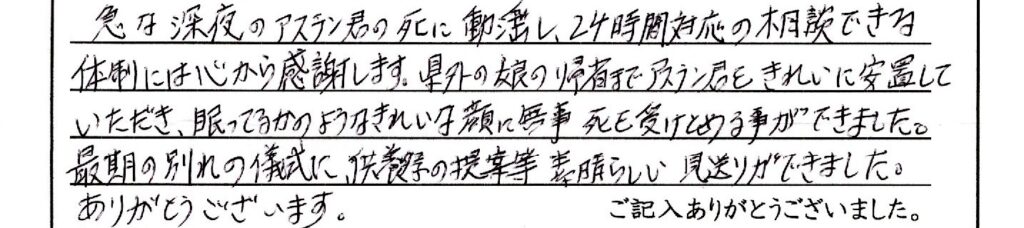 急な深夜のアステン君の死に動揺し、24時間対応の相談できる
体制には心から感謝します。県外の娘の帰省までアステン君をきれいに安置して
いただき、眠ってるかのようなきれいな顔に無事 死を受けとめる事ができました。
最期の別れの儀式に、供養祭の提案等 素晴らしい 見送りができました。
ありがとうございます。 ご記入ありがとうございました。